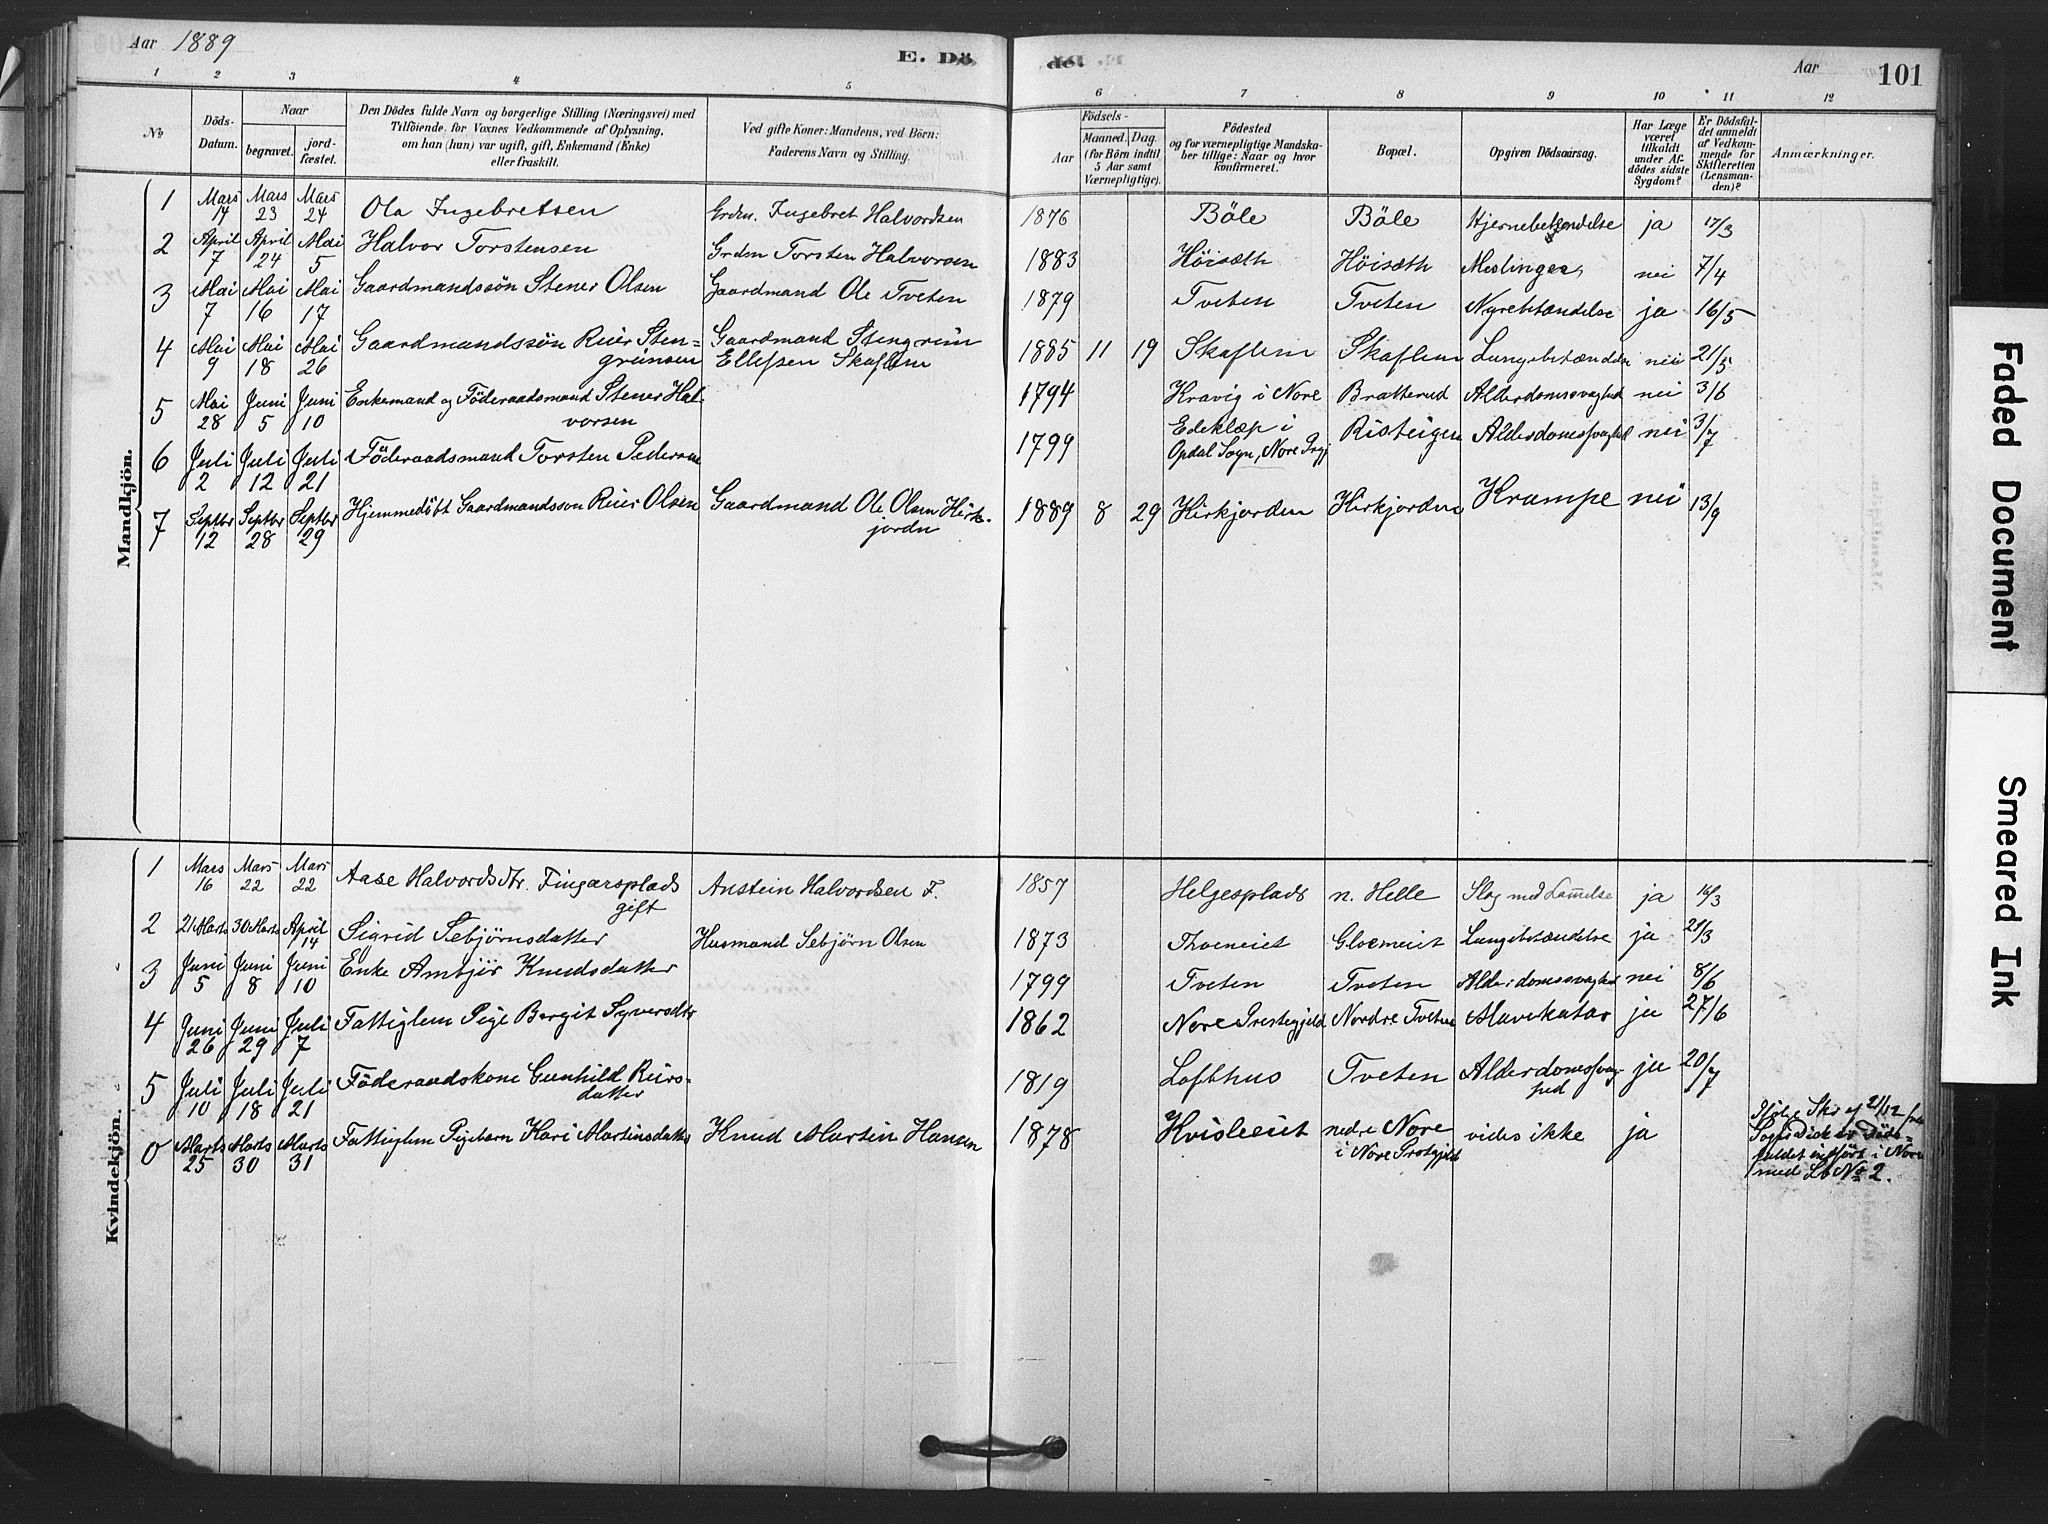 Aar 1889
E. Dö
de.
Aar
101
1 2 3 4 5 6 7 8 9 10 11 12
No
Döds-
Datum.
Naar
begravet.
jord-
fæstet.
Den Dödes fulde Navn og borgerlige Stilling (Næringsvei) med
Tilföiende, for Voxnes Vedkommende af Oplysning,
om han (hun) var ugift, gift, Enkemand (Enke)
eller fraskilt.
Ved gifte Koner: Mandens, ved Börn:
Faderens Navn og Stilling.
Födsels-
Aar
Maaned. Dag.
(for Börn indtil
5 Aar samt
Værnepligtige).
Födested
og for værnepligtige Mandska-
ber tillige: Naar og hvor
konfirmeret.
Bopæl.
Opgiven Dödsaarsag.
Har Læge
været
tilkaldt
under Af-
dödes sidste
Sygdom?
Er Dödsfal-
det anmeldt
af Vedkom-
mende for
Skifteretten
(Lensman-
den)?
Anmærkninger.
Mandkjön.
1 Mars 14 Mars 23 Mars 24 Ola Ingebretsen Grdm. Ingebret Halvordsen 1876 Böle Böle Hjernebetændelse ja 17/3
2 April 7 April 24 Mai 5 Halvor Torstensen Grdm Torsten Halvorsen 1883 Höisæth Höisæth Meslinger nei 7/4
3 Mai 7 Mai 16 Mai 17 Gaardmandssön Stener Olsen Gaardmand Ole Tveten 1879 Tveten Tveten Nyrebetændelse ja 16/5
4 Mai 9 Mai 18 Mai 26 Gaardmandssön Reier Sten=
grimsen Gaardmand Stengrim
Ellefsen Skaflem 1885 11 19 Skaflem Skaflem Lungebetændelse nei 21/5
5 Mai 28 Juni 5 Juni 10 Enkemand og Föderaadsmand Stener Hal-
vorsen 1794 Kravig i Nore Bratterud Alderdomssvaghed nei 3/6
6 Juli 2 Juli 12 Juli 21 Föderaadsmand Torsten Pedersen 1799 Edeklæp i
Opdal Sogn, Nore Prgj Risteigen Alderdomssvaghed nei 3/7
7 Septbr 12 Septbr 28 Septbr 29 Hjemmedöbt Gaardmandsson Reier Olsen Gaardmand Ole Olsen Kirk-
jorden 1889 8 29 Kirkjorden Kirkjorden Krampe nei 13/9
Kvindekjön.
1 Mars 16 Mars 22 Mars 22 Aase Halvordsdtr. Fingarsplads
gift Anstein Halvordsen F. 1857 Helgesplads n. Helle Slag med Lamelse ja 16/3
2 21 Marts 30 Marts April 14 Sigrid Sebjörnsdatter Husmand Sebjörn Olsen 1873 Lungebetændelse ja 21/3
3 Juni 5 Juni 8 Juni 10 Enke Ambjör Knudsdatter 1799 Tveten Tveten Alderdomssvaghed nei 8/6
4 Juni 26 Juni 29 Juli 7 Fattiglem Pige Bergit Syversdtr 1862 Nore Prestegjeld Nordre Tveten Mavekatar ja 27/6
5 Juli 10 Juli 18 Juli 21 Föderaadskone Gunhild Reiers-
datter 1819 Lofthus Tveten Alderdomssvag-
hed ja 20/7
0 Marts 25 Marts 30 Marts 31 Fattiglem Pigebarn Kari Martinsdatter Knud Martin Hansen 1878 Kvisleeiet nedre Nore
i Nore Prstgjeld vides ikke ja Ifölge Skr af 21/12 fra
Döds=
faldet indfört i Nore
med Lb No 2.
Faded Document
Smeared Ink